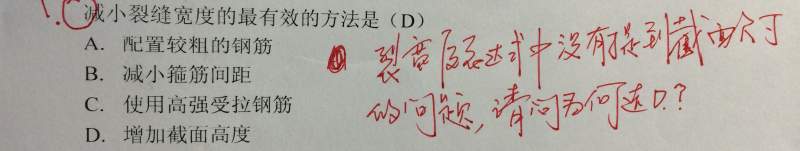 1. C 减小裂缝宽度的最有效的方法是（D）
A. 配置较粗的钢筋
B. 减小箍筋间距
C. 使用高强受拉钢筋
D. 增加截面高度
① 裂宽表达式中没有提到截面尺寸
的问题，请问为何选D.？